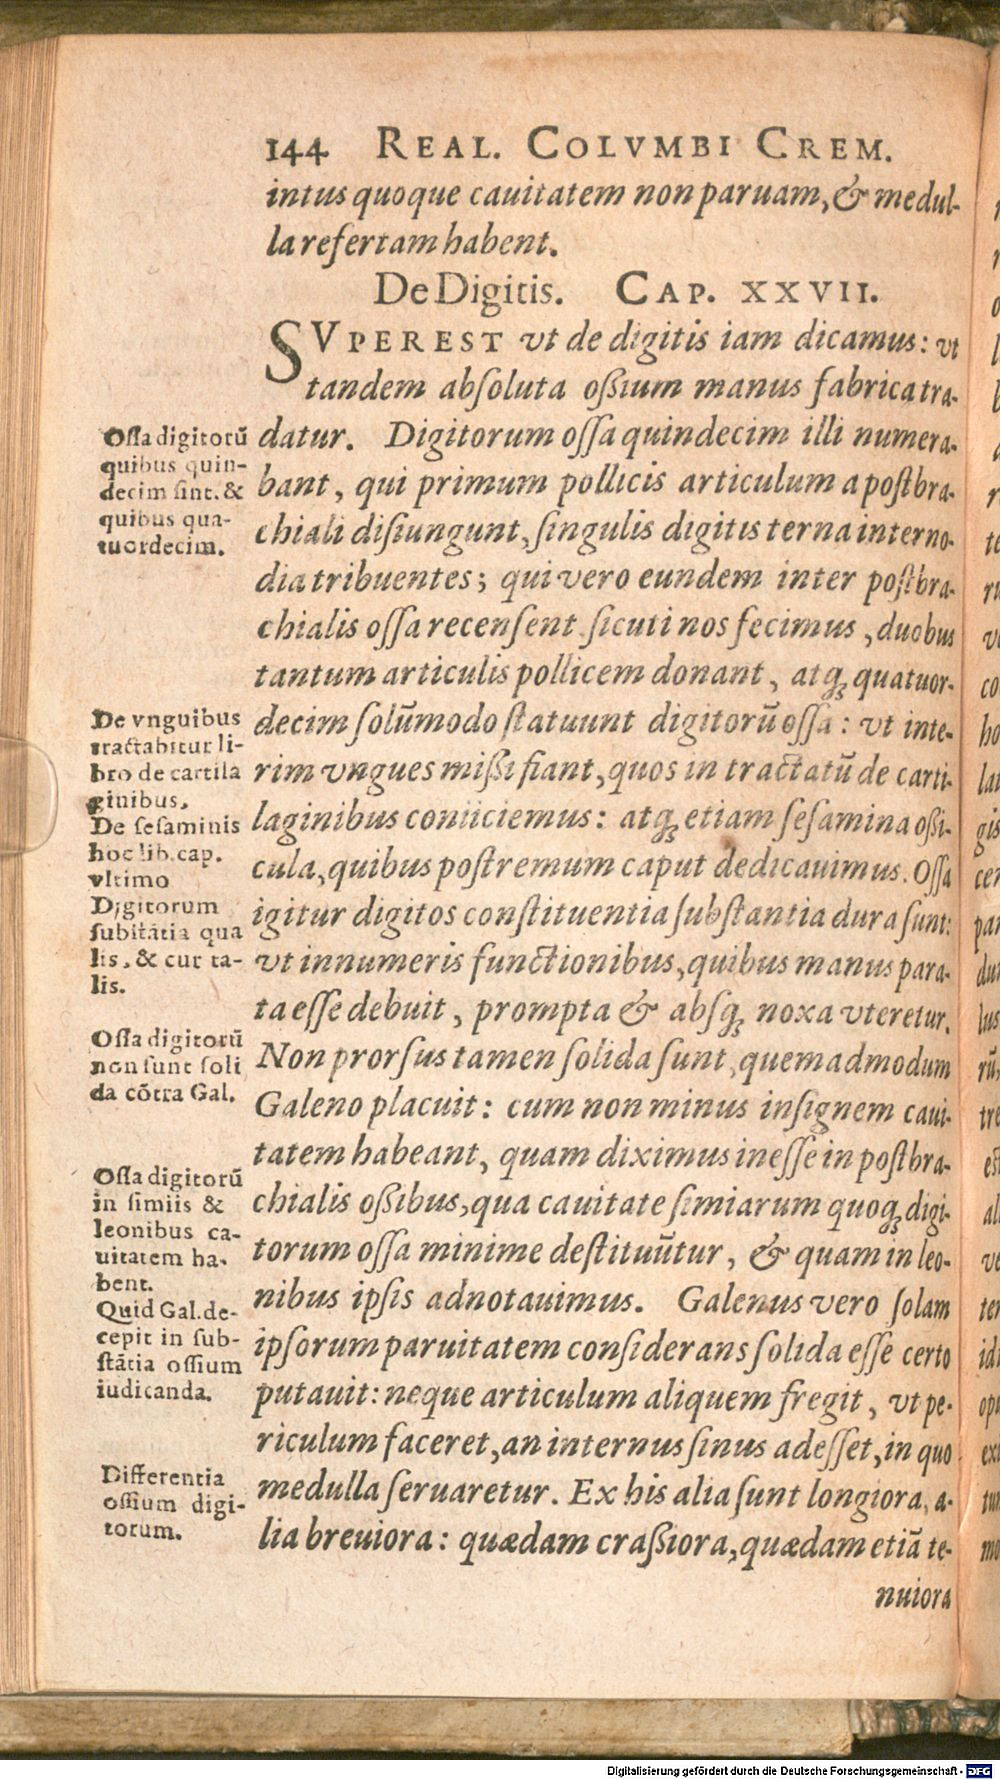 144 REAL. COLVMBI CREM.
intus quoque cauitatem non paruam, & medul-
la refertam habent.
De Digitis. CAP. XXVII.
SVPEREST vt de digitis iam dicamus: vt
tandem absoluta oßium manus fabrica tra-
datur. Digitorum ossa quindecim illi numera-
bant, qui primum pollicis articulum a postbra-
chiali disiungunt, singulis digitis terna interno-
dia tribuentes; qui vero eundem inter postbra-
chialis ossa recensent sicuti nos fecimus, duobus
tantum articulis pollicem donant, atq́; quatuor-
decim solũmodo statuunt digitorũ ossa: vt inte-
rim vngues mißi fiant, quos in tractatũ de carti-
laginibus coniiciemus: atq́; etiam sesamina oßi-
cula, quibus postremum caput dedicauimus. Ossa
igitur digitos constituentia substantia dura sunt:
vt innumeris functionibus, quibus manus para-
ta esse debuit, prompta & absq́; noxa vteretur.
Non prorsus tamen solida sunt, quemadmodum
Galeno placuit: cum non minus insignem caui-
tatem habeant, quam diximus inesse in postbra-
chialis oßibus, qua cauitate simiarum quoq́; digi-
torum ossa minime destituũtur, & quam in leo-
nibus ipsis adnotauimus. Galenus vero solam
ipsorum paruitatem considerans solida esse certo
putauit: neque articulum aliquem fregit, vt pe-
riculum faceret, an internus sinus adesset, in quo
medulla seruaretur. Ex his alia sunt longiora, a-
lia breuiora: quædam craßiora, quædam etiã te-
nuiora
Ossa digitorũ
quibus quin-
decim sint. &
quibus qua-
tuordecim.
De vnguibus
tractabitur li-
bro de cartila
ginibus.
De sesaminis
hoc lib. cap.
vltimo
Digitorum
substãtia qua
lis, & cur ta-
lis.
Ossa digitorũ
non sunt soli
da cõtra Gal.
Ossa digitorũ
in simiis &
leonibus ca-
uitatem ha-
bent.
Quid Gal. de-
cepit in sub-
stãtia ossium
iudicanda.
Differentia
ossium digi-
torum.
Digitalisierung gefördert durch die Deutsche Forschungsgemeinschaft - DFG